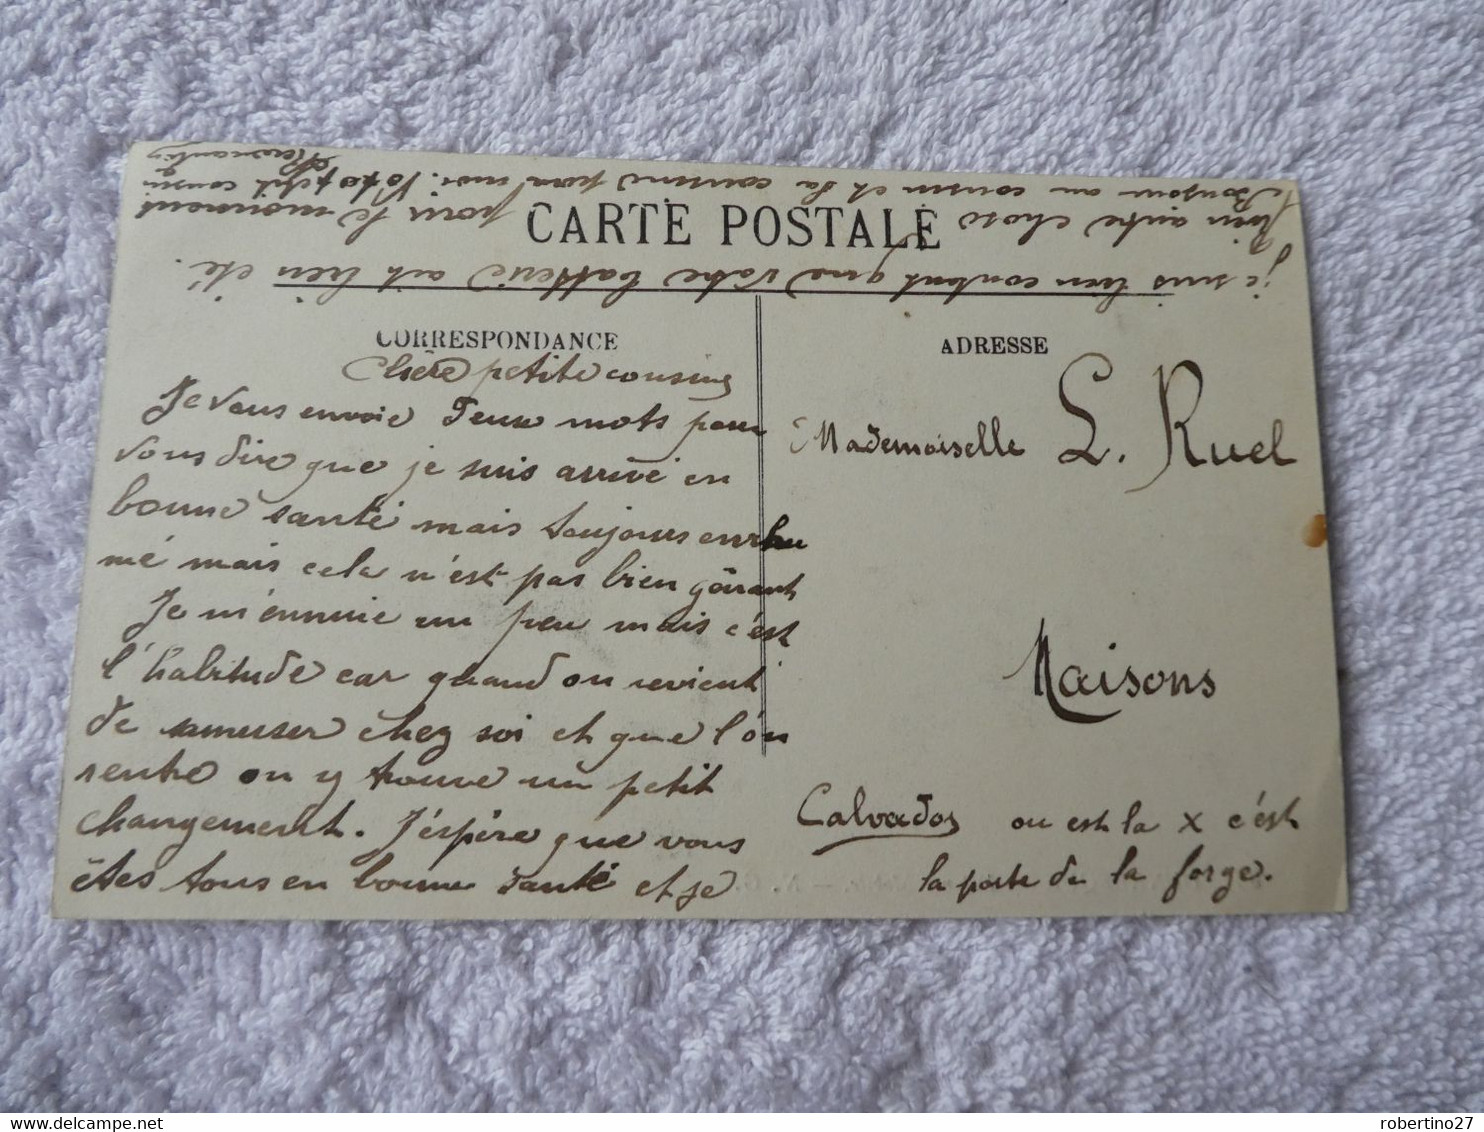 CARTE POSTALE
CORRESPONDANCE
Chère petite cousine
Je vous envoie deux mots pour
vous dire que je suis arrivé en
bonne santé mais toujours enrhu
mé mais cela n'est pas bien gênant
Je m'ennuie un peu mais c'est
l'habitude car quand on revient
de samuser chez soi et que l'on
rentre on y trouve un petit
changement. J'éspère que vous
êtes tous en bonne santé et je
je suis bien content que votre batterie ait bien été.
Rien autre chose pour le moment
Bonjour au cousin et la cousine pour moi. Votre petit cousin
ADRESSE
Mademoiselle L. Ruel
Maisons
Calvados
ou est la X c'est
la porte de la forge.
robertino27